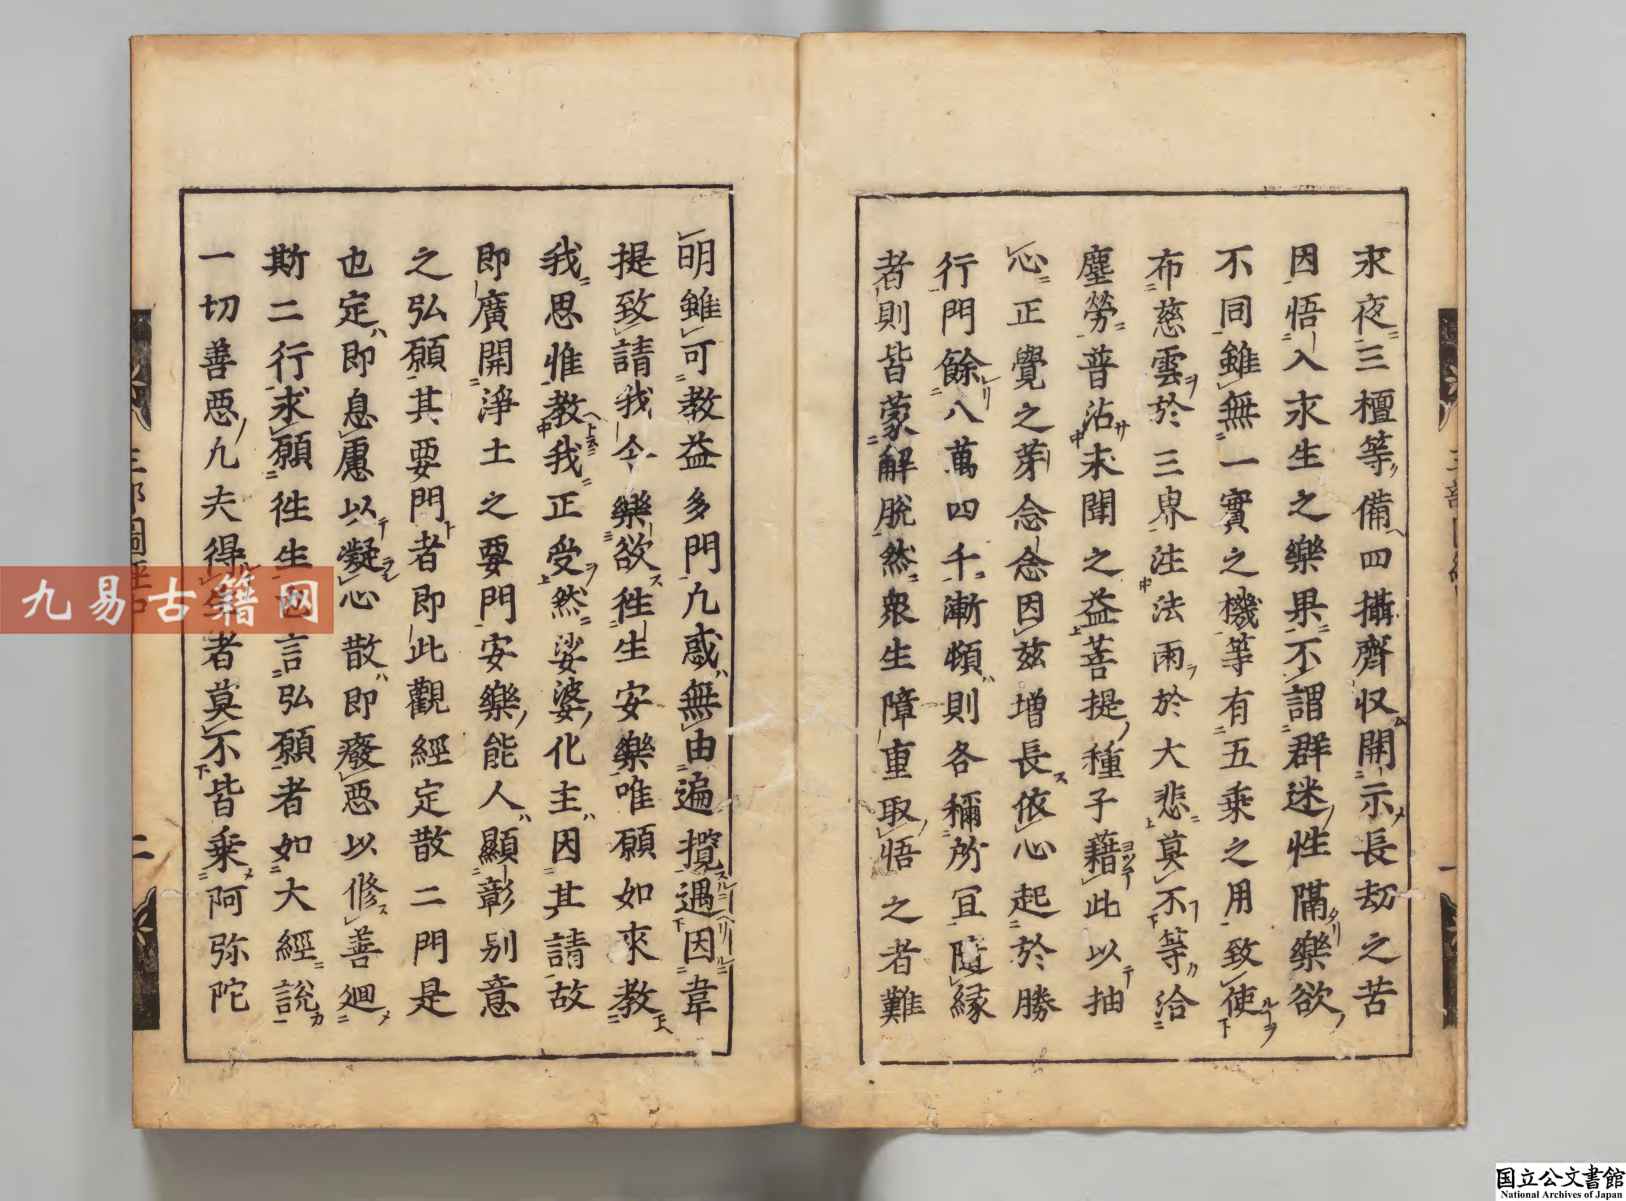 永夜三檀等備四攝齊収開示長劫之苦
因悟入永生之樂果不謂群迷性隔樂欲
不同雖無一實之機等有五乘之用致使
布慈雲於三界注法雨於大悲莫不等洽
塵勞普沾未聞之益菩提種子藉此以抽
心正覺之芽念念因茲增長依心起於勝
行門餘八萬四千漸頓則各稱所宜隨縁
者則皆蒙解脫然衆生障重取悟之者難
明雖可教益多門凡惑無由遍攬遇因韋
提致請我今樂欲往生安樂唯願如來教
我思惟教我正受然娑婆化主因其請故
即廣開淨土之要門安樂能人顯彰别意
之弘願其要門者即此觀經定散二門是
也定即息慮以凝心散即廢惡以修善迴
斯二行求願往生也言弘願者如大經說
一切善惡凡夫得生者莫不皆乘阿弥陀
二
九易古籍网
国立公文書館
National Archives of Japan